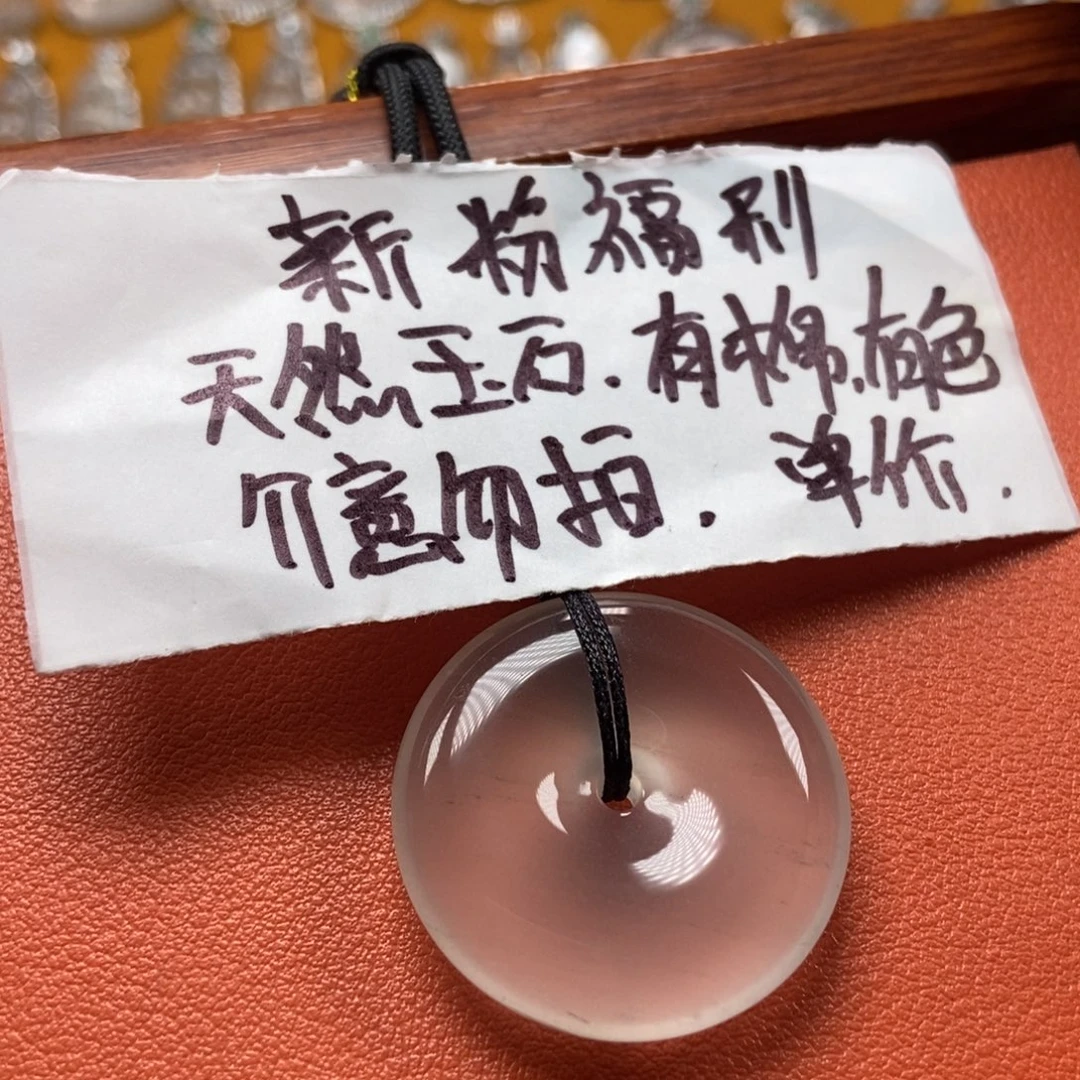 新粉福利
天然玉石.有棉.有色
介意勿拍. 单价.